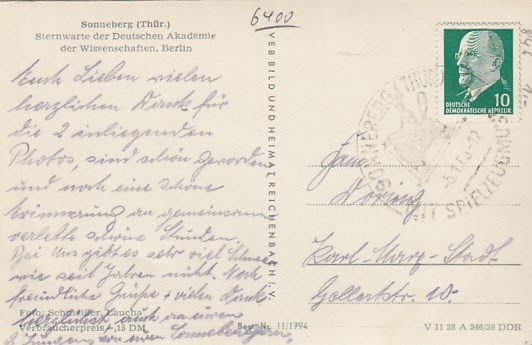 6400
Sonneberg (Thür.)
Sternwarte der Deutschen Akademie
der Wissenschaften, Berlin
Euch Lieben vielen
herzlichen Dank für
die 2 inliegenden
Photos, sind schön geworden
und noch eine schöne
Erinnerung an gemeinsam
verlebte schöne Stunden.
Bei uns gibt es sehr viel Schnee
wie seit Jahren nicht. Noch
freundliche Grüße + vielen Dank
von euren Sonnebergern,
Foto: Schmeißer, Laucha
Verbraucherpreis -,15 DM
Best. Nr. 11/1794
VEB BILD UND HEIMAT REICHENBACH I. V.
10
DEUTSCHE
DEMOKRATISCHE REPUBLIK
SONNEBERG (THÜR)
MIT SPIELZEUG
Fam.
Karl-Marx-Stadt
Gellertstr. 10.
V 11 28 A 346/59 DDR